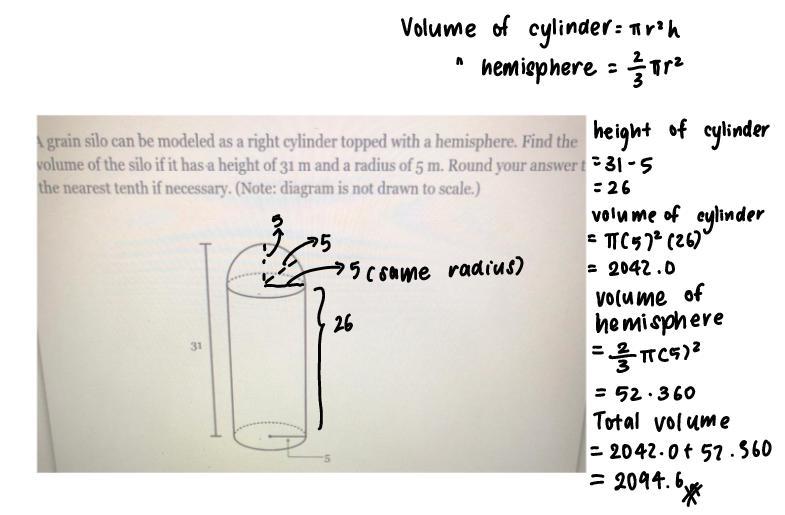 Volume of cylinder = πr²h
" hemisphere = 2/3 πr²
A grain silo can be modeled as a right cylinder topped with a hemisphere. Find the
volume of the silo if it has a height of 31 m and a radius of 5 m. Round your answer t
the nearest tenth if necessary. (Note: diagram is not drawn to scale.)
5
5
5 (same radius)
26
31
5
height of cylinder
= 31 - 5
= 26
volume of cylinder
= π(5)² (26)
= 2042.0
volume of
hemisphere
= 2/3 π(5)²
= 52.360
Total volume
= 2042.0 + 52.360
= 2094.6